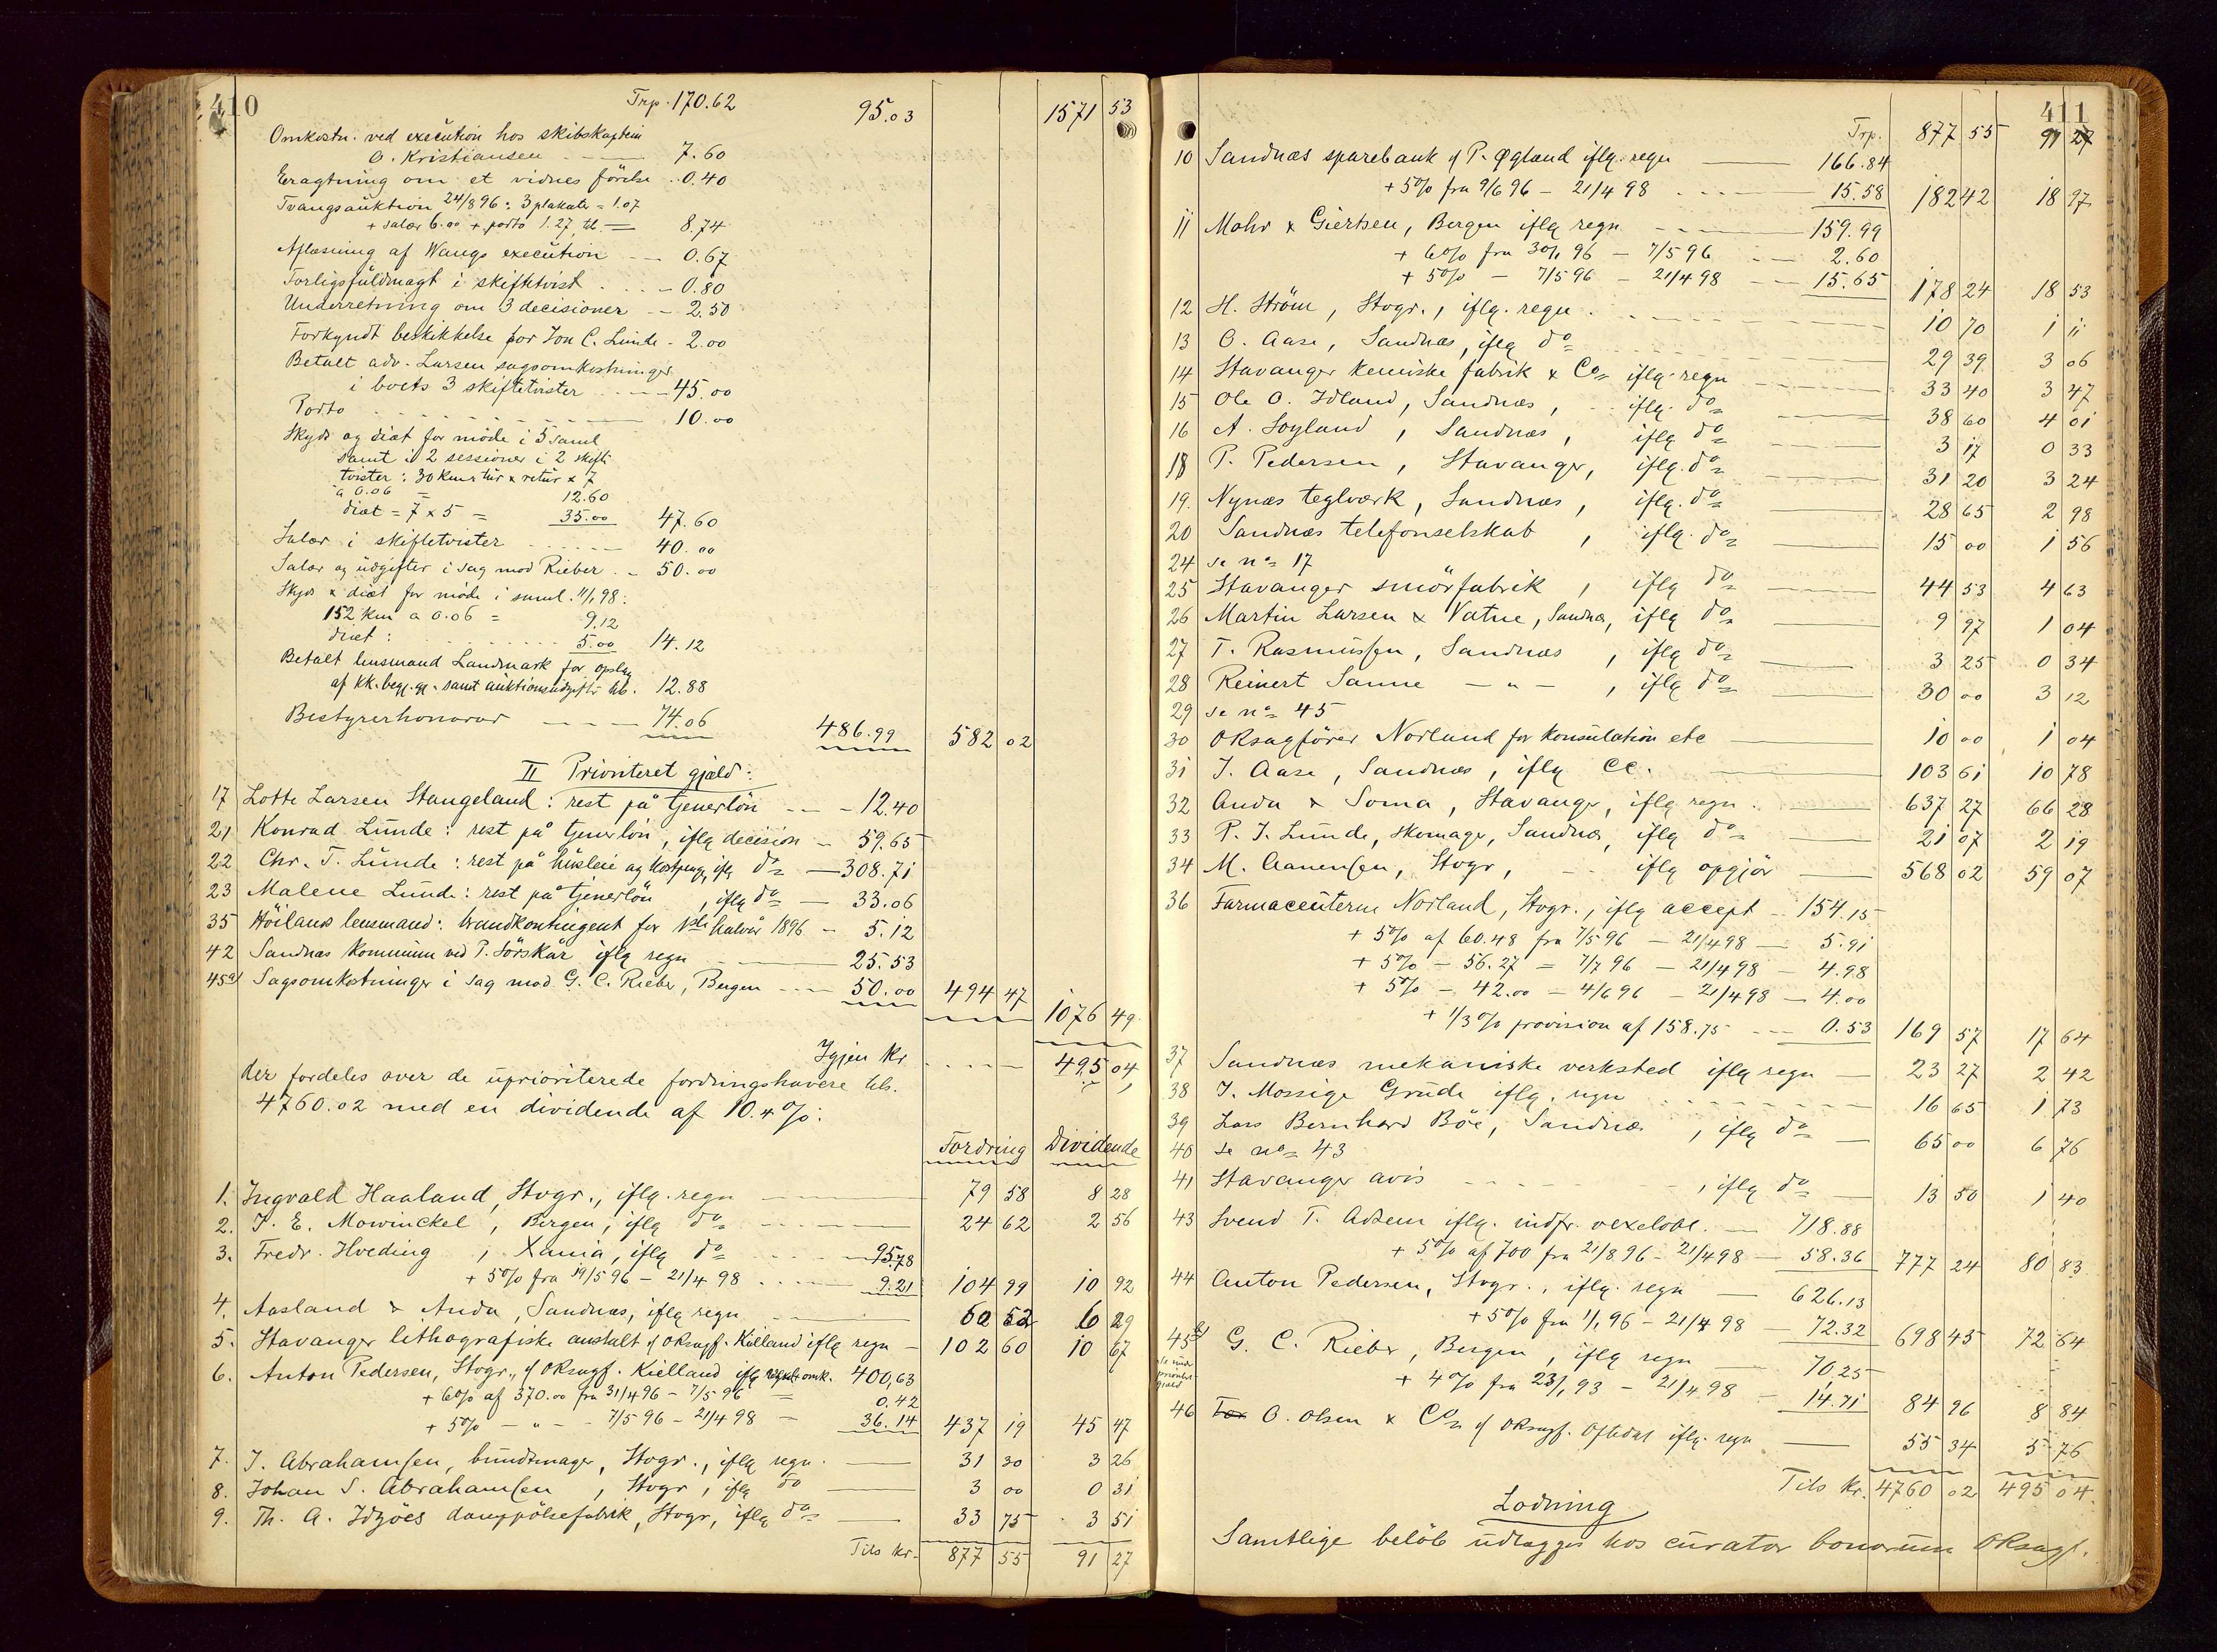 410
Trp. 170.62 95.03 1571 53
Omkostn. ved execution hos skibskaptein
O. Kristiansen - - — 7.60
Eragtning om et vidnes förelse . 0.40
Tvangsauktion 24/8 96: 3 plakater = 1.07
+ salær 6.00 + porto 1.27, tils. — 8.74
Aflæsning af Wangs execution - - 0.67
Forligsfuldmagt i skiftetvist . . . - 0.80
Underretning om 3 decisioner - - 2.50
Forkyndt beskikkelse for Jon C. Lunde - 2.00
Betalt adv. Larsen sagsomkostninger
i boets 3 skiftetvister - - - - 45.00
Porto - - - - - - 10.00
Skyds og diæt for möde i 5 saml.
samt i 2 sessioner i 2 skifte
tvister: 30 km. tur & retur x 7
a 0.06 = 12.60
diæt = 7 x 5 = 35.00 47.60
Salær i skiftetvister - - - - 40.00
Salær og udgifter i sag mod Rieber . - 50.00
Skyds & diæt for möde i saml. 11/1 98:
152 km a 0.06 = 9.12
diæt: - - - - - 5.00 14.12
Betalt lensmand Landmark for opslag
af kk. begj. gj. samt auktionsudgifter tils. 12.88
Bestyrerhonorar - - - - 74.06 486.99 582 02
II Prioriteret gjæld:
17 Lotte Larsen Stangeland: rest på tjenerlön - - - 12.40
21 Konrad Lunde: rest på tjenerlön, iflg decision - 59.65
22 Chr. T. Lunde: rest på husleie og kostpenge, iflg do — 308.71
23 Malene Lunde: rest på tjenerlön, iflg do — 33.06
35 Höilands lensmand: brandkontingent for 1ste halvår 1896 - 5.12
42 Sandnæs kommune ved P. Sörskår iflg regn - — 25.53
45a) Sagsomkostninger i sag mod G. C. Rieber, Bergen - - - 50.00 494 47 1076 49
Igjen kr - - - - 495 04
der fordeles over de uprioriterede fordringshavere tils.
4760.02 med en dividende af 10.4 %:
Fordring Dividende
1. Ingvald Haaland, Stvgr., iflg. regn — 79 58 8 28
2. J. E. Mowinckel, Bergen, iflg do - - - 24 62 2 56
3. Fredr. Hveding, Xania, iflg do - - - 95.78
+ 5% fra 19/5 96 - 21/4 98 - - - 9.21 104 99 10 92
4. Aasland & Anda, Sandnæs, iflg regn - - 60 52 6 29
5. Stavanger lithografiske anstalt v/ Oksagf. Kielland iflg regn - 102 60 10 67
6. Anton Pedersen, Stvgr., v/ Oksagf. Kielland iflg omk. 400,63
+ 6% af 370.00 fra 31/4 96 - 7/5 96 = 0.42
+ 5% - " - - 7/5 96 - 21/4 98 — 36.14 437 19 45 47
7. J. Abrahamsen, bundtmager, Stvgr., iflg regn. — 31 30 3 26
8. Johan S. Abrahamsen, Stvgr, iflg do — 3 00 0 31
9. Th. A. Idzöes damppölsefabrik, Stvgr, iflg do — 33 75 3 51
Tils kr. 877 55 91 27
411
Trp. 877 55 91 27
10 Sandnæs sparebank v/ P. Øgland iflg. regn — 166.84
+ 5% fra 9/6 96 - 21/4 98 - - - 15.58 182 42 18 97
11 Mohr & Giertsen, Bergen iflg regn - - - 159.99
+ 6% fra 30/1 96 - 7/5 96 - - 2.60
+ 5% - 7/5 96 - 21/4 98 - - 15.65 178 24 18 53
12 H. Ström, Stvgr., iflg. regn. - - - 10 70 1 11
13 O. Aase, Sandnæs, iflg do - - - 29 39 3 06
14 Stavanger kemiske fabrik & Co iflg. regn - - - 33 40 3 47
15 Ole O. Idland, Sandnæs, - - iflg. do — 38 60 4 01
16 A. Soyland, Sandnæs, iflg do — 3 17 0 33
18 P. Pedersen, Stavanger, iflg. do — 31 20 3 24
19. Nynæs teglværk, Sandnæs, iflg. do — 28 65 2 98
20 Sandnæs telefonselskab, iflg. do — 15 00 1 56
24 se no 17
25 Stavanger smörfabrik, iflg do — 44 53 4 63
26 Martin Larsen & Vatne, Sandnæs, iflg do — 9 97 1 04
27 T. Rasmussen, Sandnæs, iflg do — 3 25 0 34
28 Reinert Sanne — " —, iflg do — 30 00 3 12
29 se no 45
30 Oksagförer Norland for konsulation etc — 10 00 1 04
31 J. Aase, Sandnæs, iflg CC. — 103 61 10 78
32 Anda & Soma, Stavanger, iflg regn. — 637 27 66 28
33 P. J. Lunde, skomager, Sandnæs, iflg do — 21 07 2 19
34 M. Aanensen, Stvgr, - - iflg opgjör — 568 02 59 07
36 Farmaceuterne Norland, Stvgr., iflg accept - 154.15
+ 5% af 60.48 fra 7/5 96 - 21/4 98 — 5.91
+ 5% - 56.27 = 7/7 96 - 21/4 98 - 4.98
+ 5% - 42.00 - 4/6 96 - 21/4 98 - 4.00
+ 1/3% provision af 158.75 - - - 0.53 169 57 17 64
37 Sandnæs mekaniske verksted iflg regn — 23 27 2 42
38 J. Mossige Grude iflg. regn - - - 16 65 1 73
39 Lars Bernhard Böe, Sandnæs, iflg do — 65 00 6 76
40 se no 43
41 Stavanger avis - - - -, iflg do — 13 50 1 40
43 Svend T. Adsem iflg. indfr. vexelobl. — 718.88
+ 5% af 700 fra 21/8 96 - 21/4 98 — 58.36 777 24 80 83
44 Anton Pedersen, Stvgr., iflg. regn — 626.13
+ 5% fra 1/1 96 - 21/4 98 — 72.32 698 45 72 64
45b) G. C. Rieber, Bergen, iflg regn — 70,25
se under prioritet gjæld
+ 4% fra 23/1 93 - 21/4 98 - 14.71 84 96 8 84
46 O. Olsen & Co v/ Oksagf. Oftedal iflg. regn — 55 34 5 76
Tils kr. 4760 02 495 04.
Lodning
Samtlige belöb udlægges hos curator bonorum Oksagf.